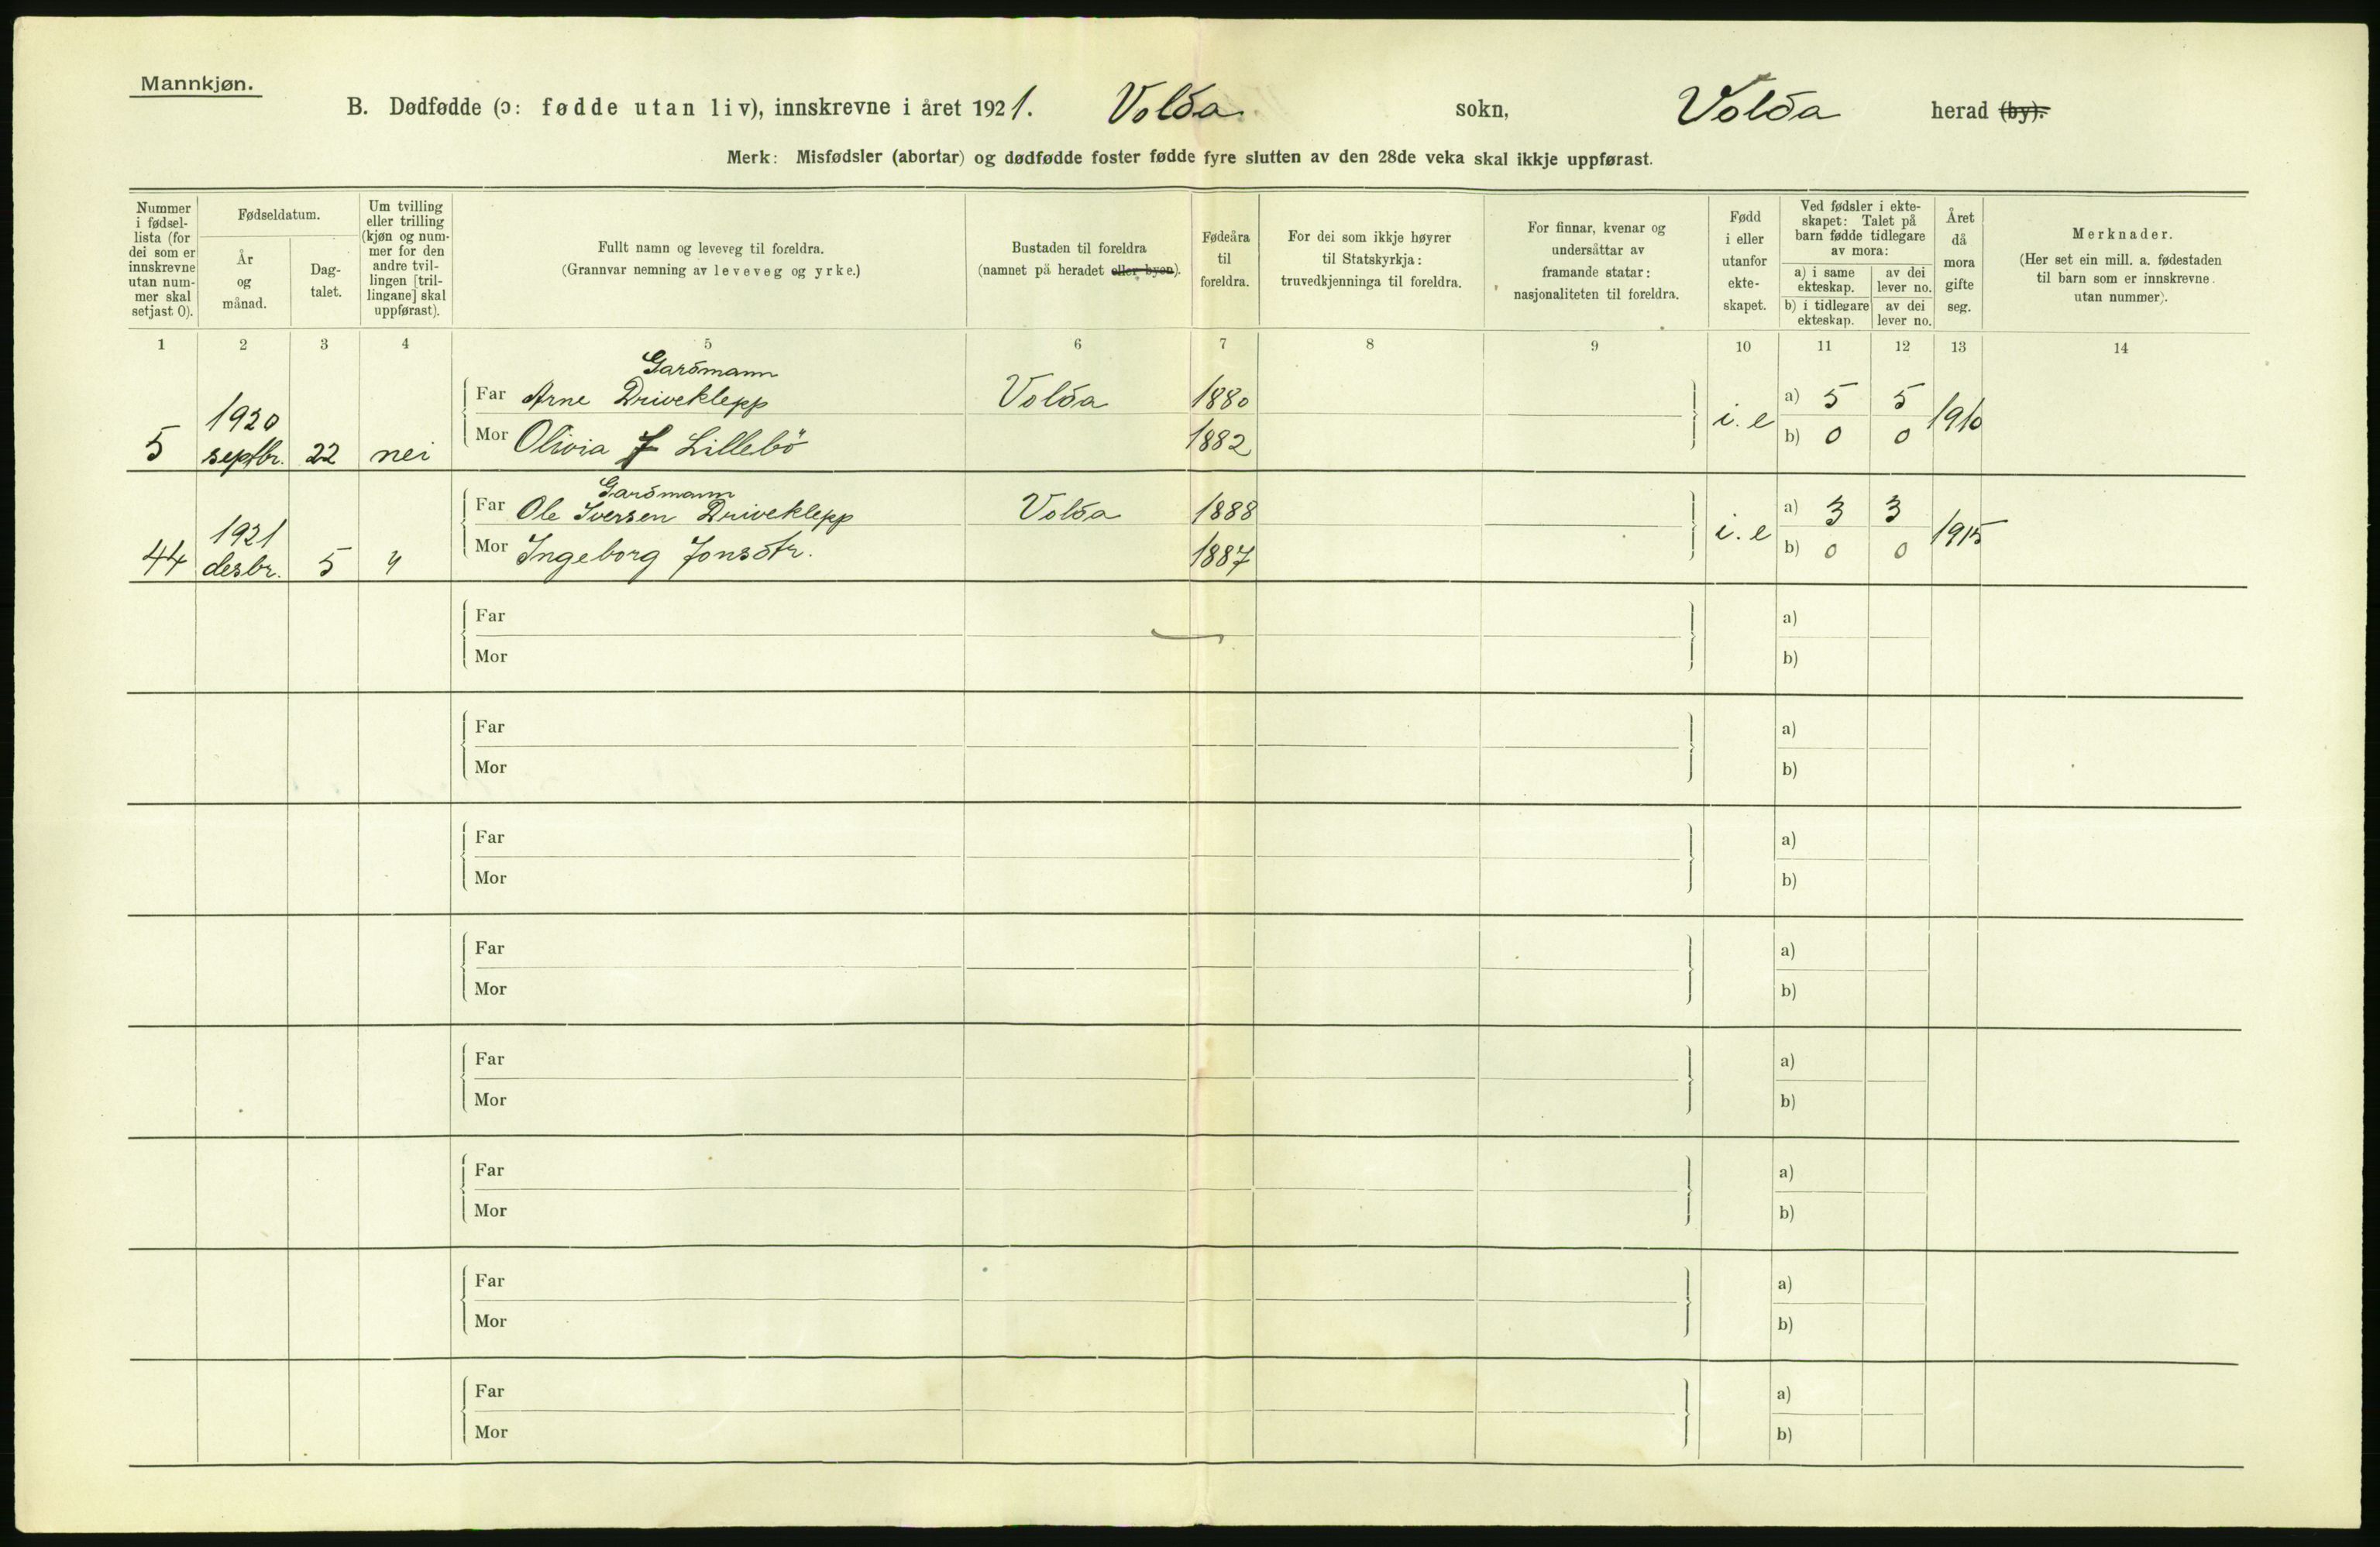 Mannkjøn.
B. Dødfødde (ɔ: fødde utan liv), innskrevne i året 1921. Volda sokn, Volda herad (by).
Merk: Misfødsler (abortar) og dødfødde foster fødde fyre slutten av den 28de veka skal ikkje uppførast.
Nummer i fødsel-lista (for dei som er innskrevne utan num-mer skal setjast 0).
Fødseldatum.
År og månad.
Dag-talet.
Um tvilling eller trilling (kjøn og num-mer for den andre tvil-lingen [tril-lingane] skal uppførast).
Fullt namn og leveveg til foreldra.
(Grannvar nemning av leveveg og yrke.)
Bustaden til foreldra
(namnet på heradet eller byen).
Fødeåra til foreldra.
For dei som ikkje høyrer til Statskyrkja: truvedkjenninga til foreldra.
For finnar, kvenar og undersåttar av framande statar: nasjonaliteten til foreldra.
Fødd i eller utanfor ekte-skapet.
Ved fødsler i ekte-skapet: Talet på barn fødde tidlegare av mora:
a) i same ekteskap. av dei lever no.
b) i tidlegare ekteskap. av dei lever no.
Året då mora gifte seg.
Merknader.
(Her set ein mill. a. fødestaden til barn som er innskrevne utan nummer).
1 2 3 4 5 6 7 8 9 10 11 12 13 14
Gardmann
Far Arne Driveklepp Volda 1880 a) 5 5
5 1920 septbr. 22 nei Mor Olivia J Lillebö 1882 i. e b) 0 0 1910
Gardmann
Far Ole Iversen Driveklepp Volda 1888 a) 3 3
44 1921 desbr. 5 " Mor Ingeborg Jonsdtr. 1887 i. e b) 0 0 1915
Far a)
Mor b)
Far a)
Mor b)
Far a)
Mor b)
Far a)
Mor b)
Far a)
Mor b)
Far a)
Mor b)
Far a)
Mor b)
Far a)
Mor b)